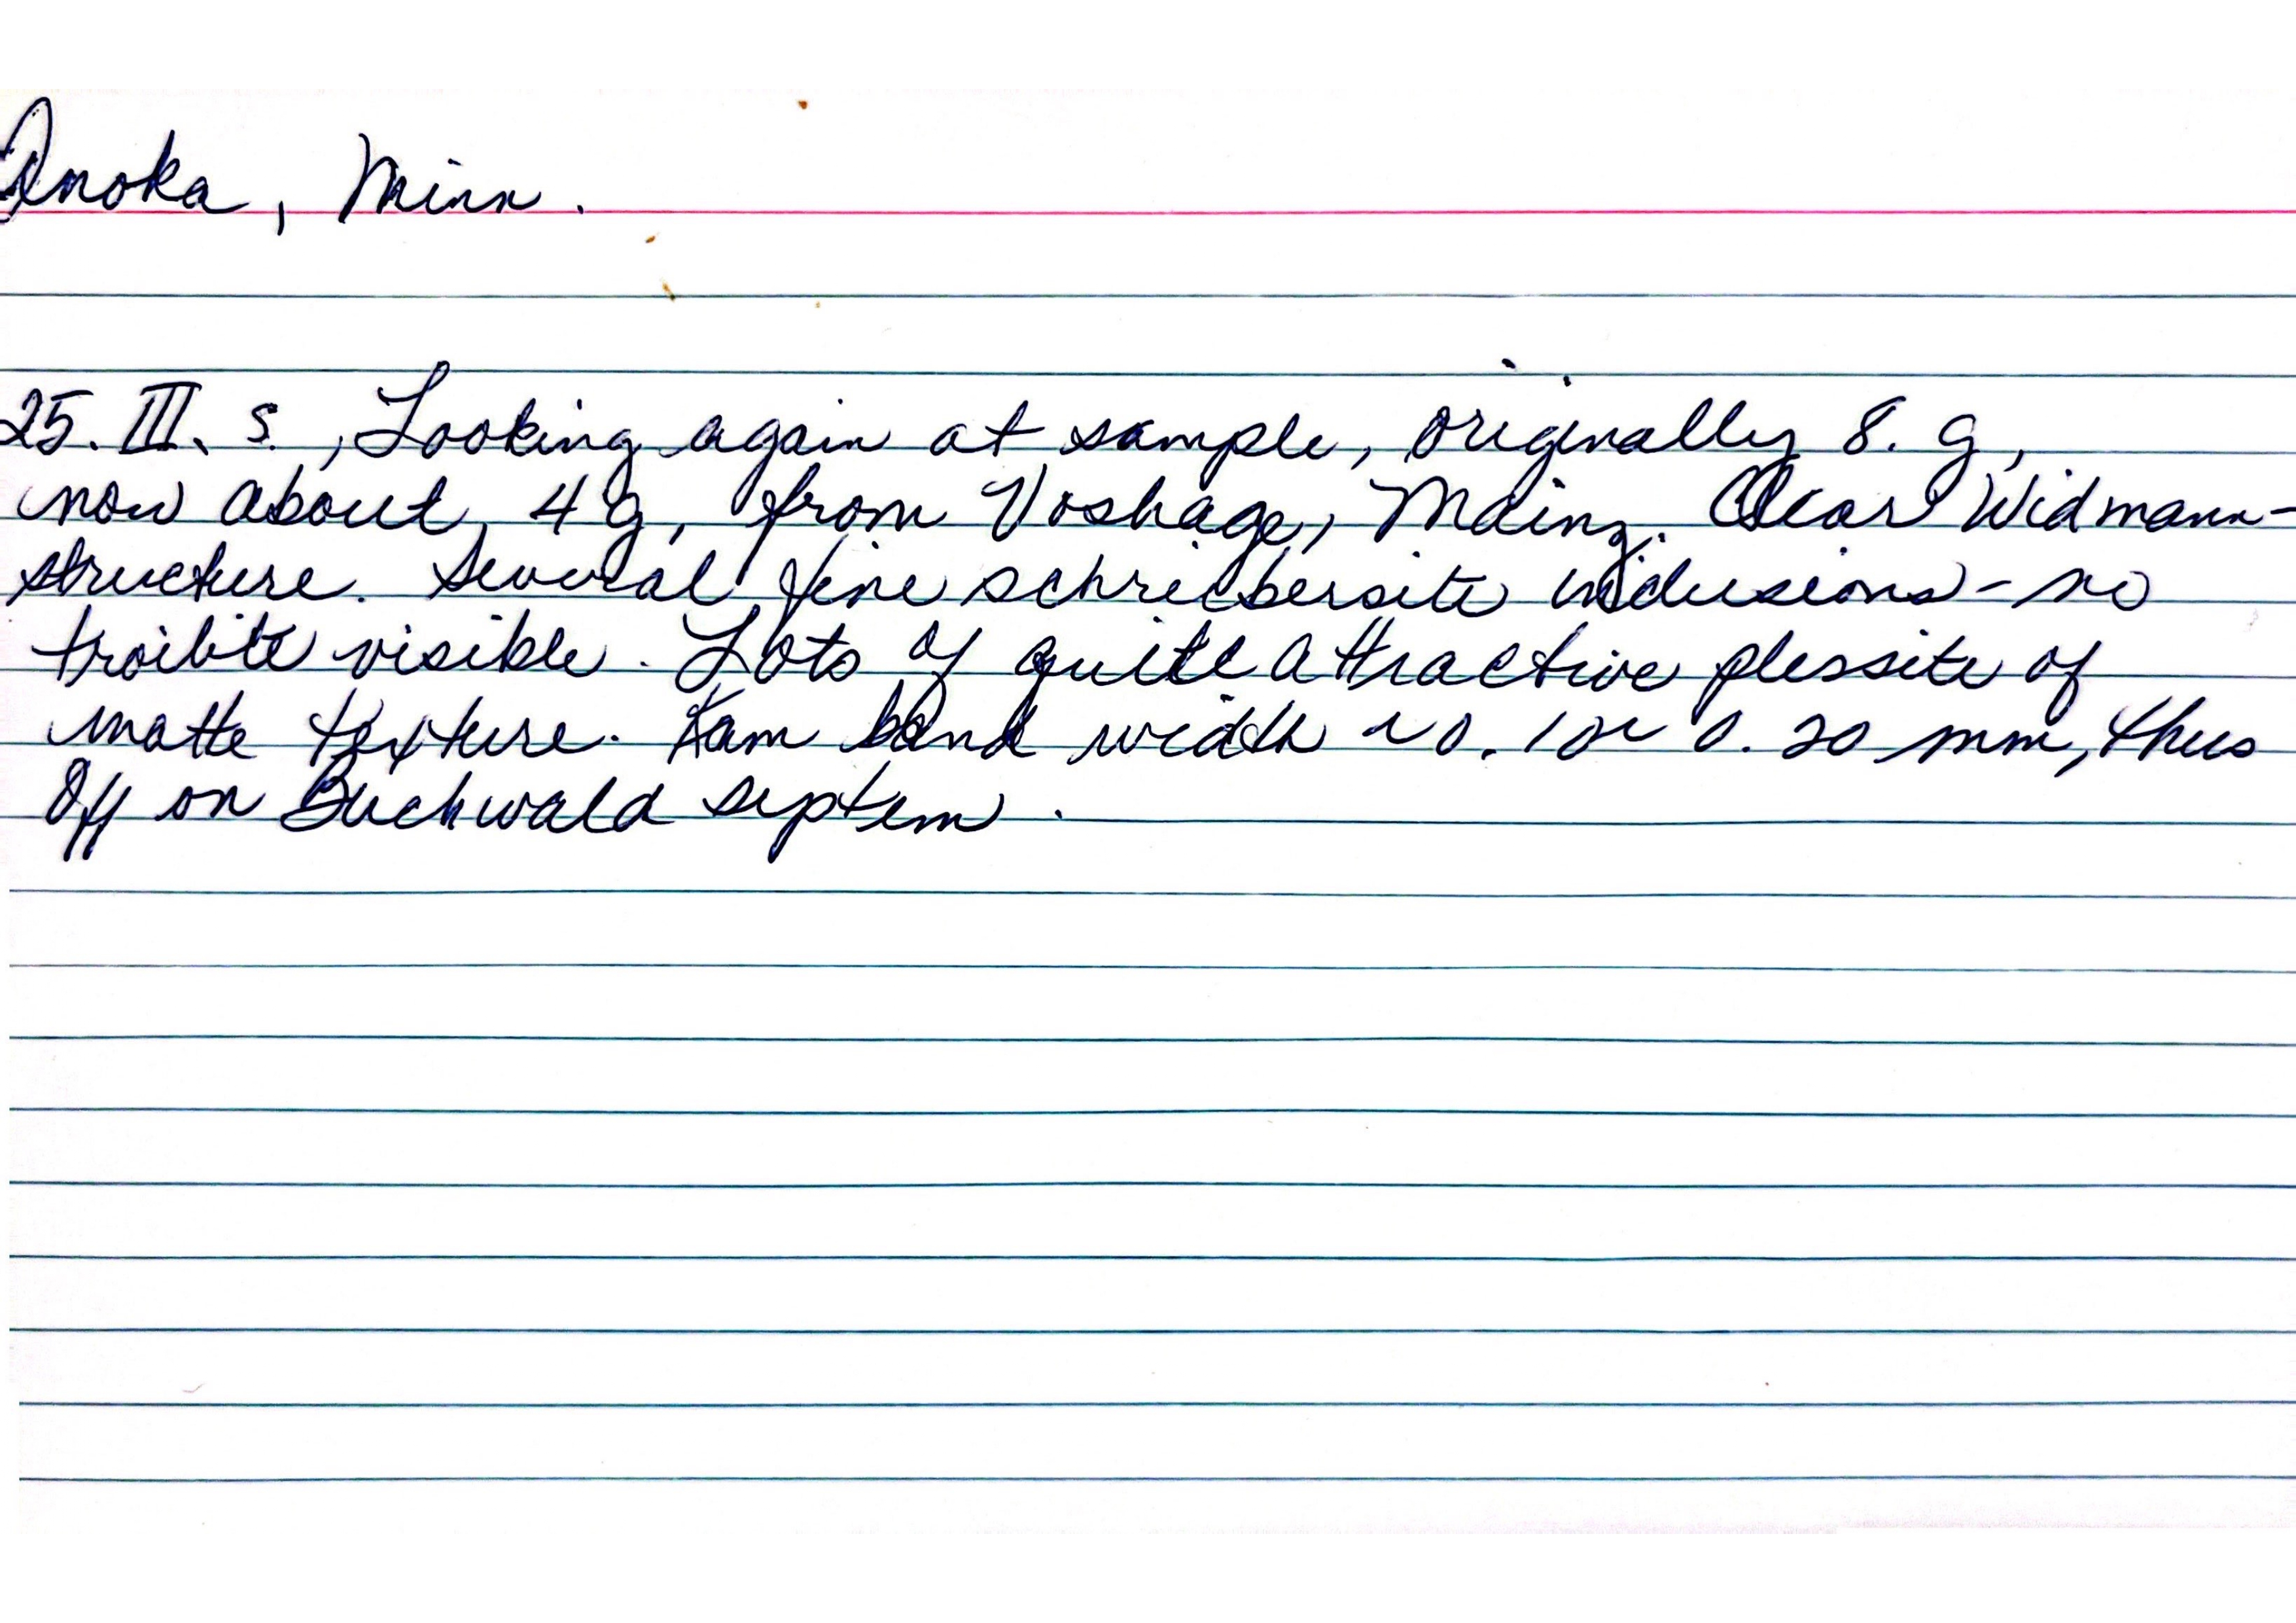 Anoka, Minn.
25. III. s., Looking again at sample, originally 8. g,
now about 4 g, from Voshage, Mainz. Clear Widmann-
structure. Several fine schreibersite inclusions - no
troilite visible. Lots of quite attractive plessite of
matte texture. Kam band width ~ 0. 1 or 0. 20 mm, thus
Off on Buchwald system.